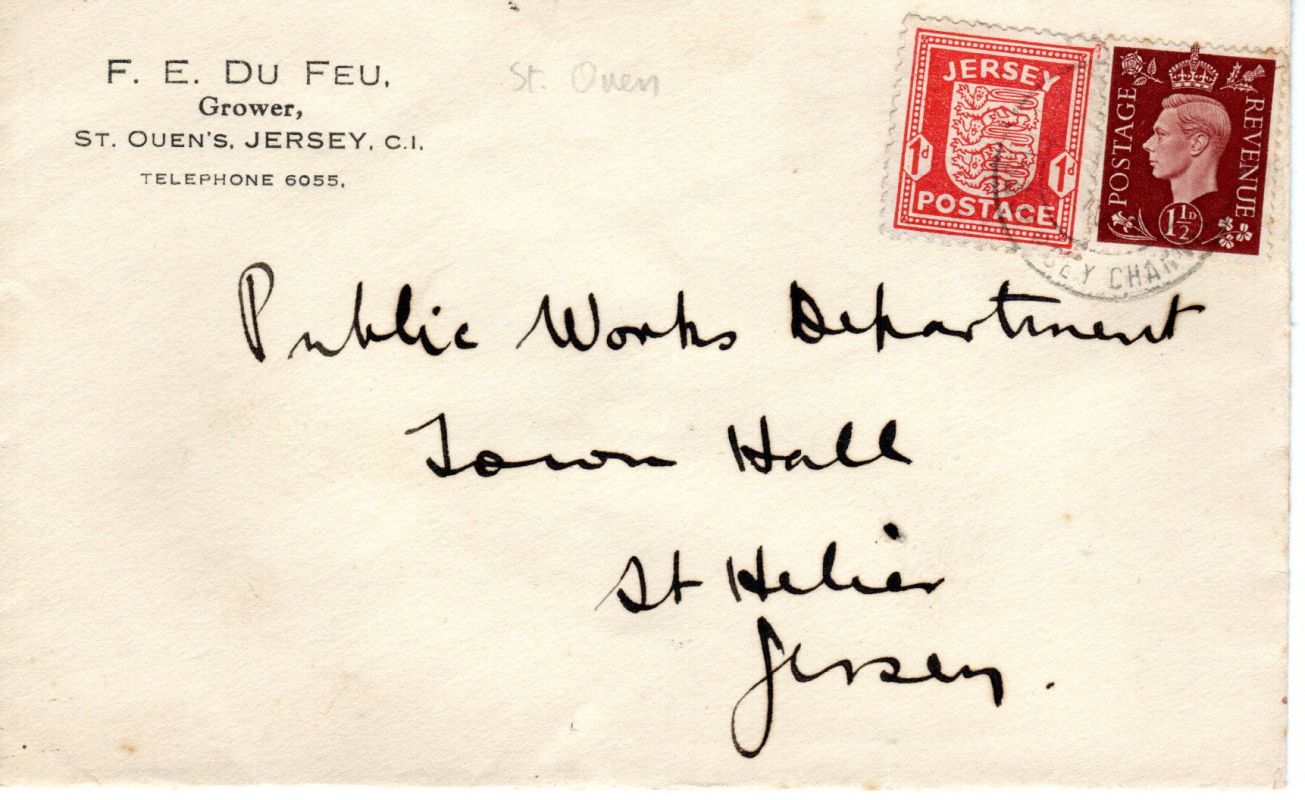 F. E. DU FEU,
Grower,
ST. OUEN'S, JERSEY, C.I.
TELEPHONE 6055,
St. Ouen
JERSEY
1d 1d
POSTAGE
POSTAGE
REVENUE
1½D
EY CHAN
Public Works Department
Town Hall
St Helier
Jersey.